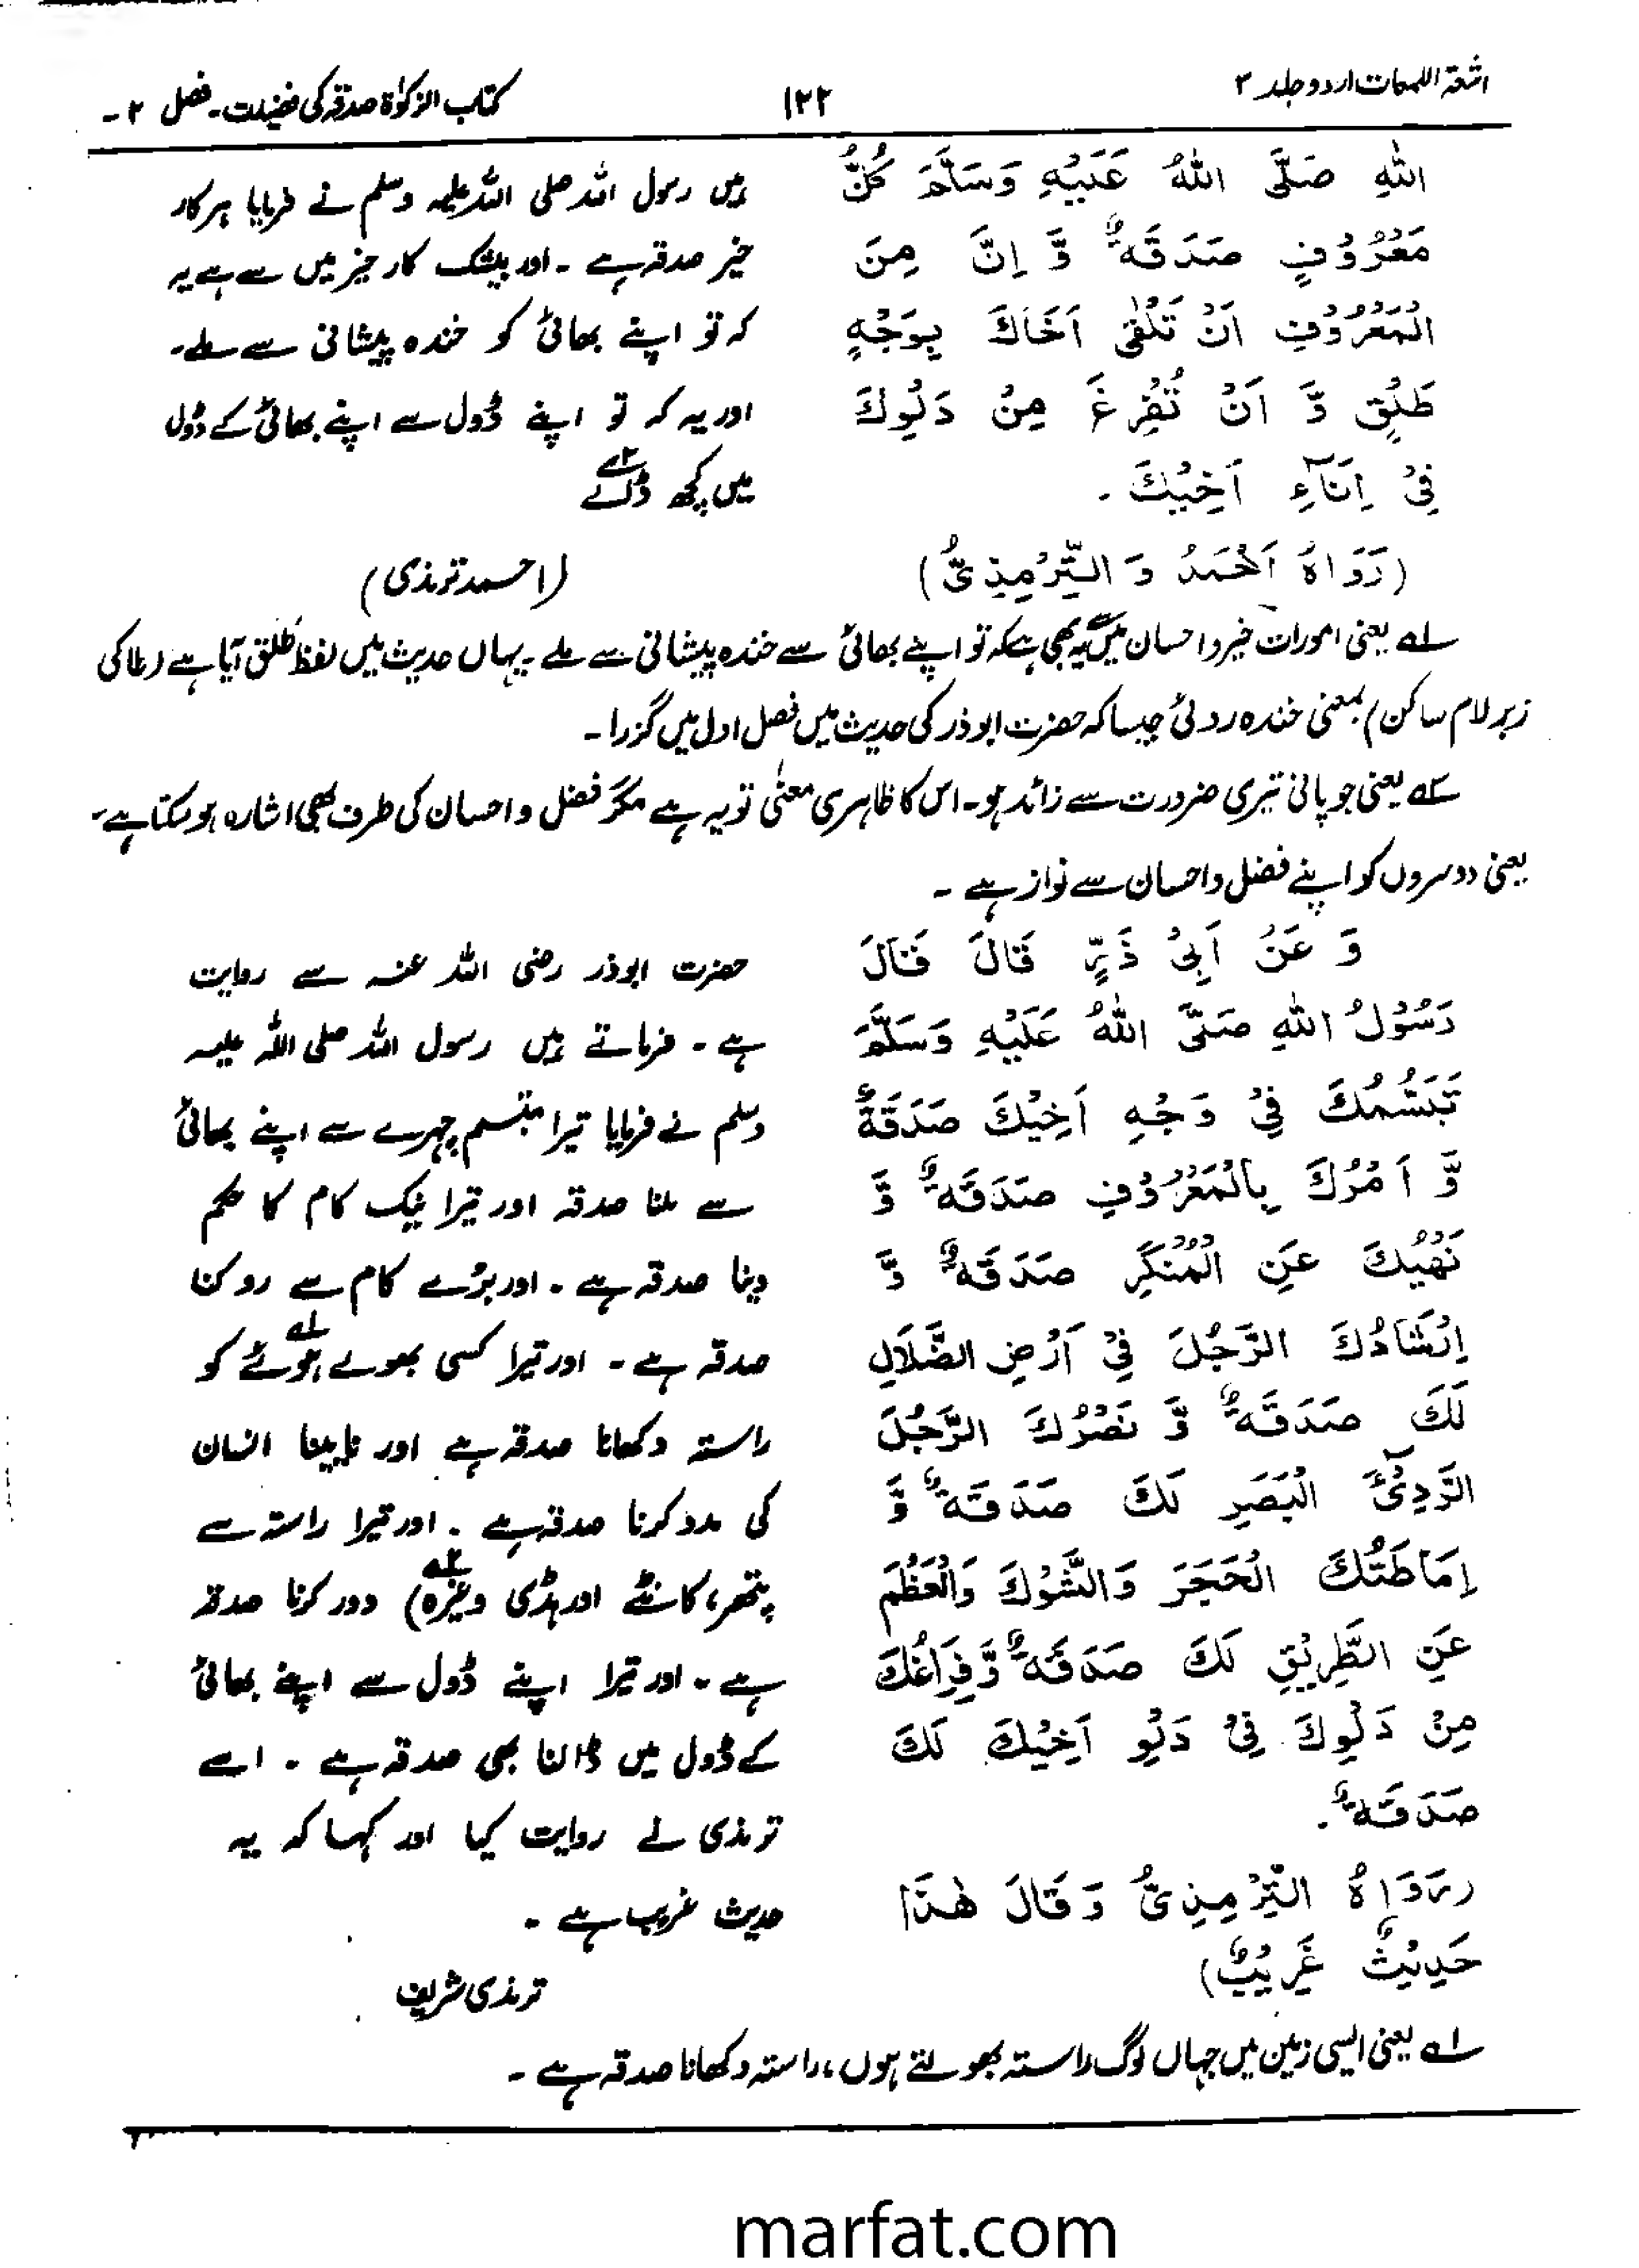 اشعۃ اللمعات اردو جلد ۳
۱۲۲
کتاب الزکوٰۃ صدقہ کی فضیلت۔ فصل ۲ ۔
اللهِ صَلَّى اللهُ عَلَيْهِ وَسَلَّمَ كُلُّ
مَعْرُوْفٍ صَدَقَةٌ وَّ اِنَّ مِنَ
الْمَعْرُوْفِ اَنْ تَلْقٰى اَخَاكَ بِوَجْهٍ
طَلْقٍ وَّ اَنْ تُفْرِغَ مِنْ دَلْوِكَ
فِىْ اِنَآءِ اَخِيْكَ ۔
(رَوَاهُ اَحْمَدُ وَ التِّرْمِذِىُّ)
ہیں رسول اللہ صلی اللہ علیہ وسلم نے فرمایا ہر کار
خیر صدقہ ہے ۔ اور بیشک کار خیر میں سے ہے یہ
کہ تو اپنے بھائی کو خندہ پیشانی سے ملے۔
اور یہ کہ تو اپنے ڈول سے اپنے بھائی کے ڈول
میں کچھ ڈالے ۲ے
(احمد ترمذی)
لے یعنی امورات خیر و احسان میں یہ بھی ہے کہ تو اپنے بھائی سے خندہ پیشانی سے ملے ۔ یہاں حدیث میں لفظ طَلْق آیا ہے (طا کی
زبر لام ساکن) بمعنی خندہ روئی جیسا کہ حضرت ابوذر کی حدیث میں فصل اول میں گزرا ۔
۲ے یعنی جو پانی تیری ضرورت سے زائد ہو۔ اس کا ظاہری معنٰی تو یہ ہے مگر فضل و احسان کی طرف بھی اشارہ ہو سکتا ہے۔
یعنی دوسروں کو اپنے فضل و احسان سے نوازہے ۔
وَ عَنْ اَبِىْ ذَرٍّ قَالَ قَالَ
رَسُوْلُ اللهِ صَلَّى اللهُ عَلَيْهِ وَسَلَّمَ
تَبَسُّمُكَ فِىْ وَجْهِ اَخِيْكَ صَدَقَةٌ
وَّ اَمْرُكَ بِالْمَعْرُوْفِ صَدَقَةٌ وَّ
نَهْيُكَ عَنِ الْمُنْكَرِ صَدَقَةٌ وَّ
اِرْشَادُكَ الرَّجُلَ فِىْ اَرْضِ الضَّلَالِ
لَكَ صَدَقَةٌ وَّ نَصْرُكَ الرَّجُلَ
الرَّدِىْٓءَ الْبَصَرِ لَكَ صَدَقَةٌ وَّ
اِمَاطَتُكَ الْحَجَرَ وَالشَّوْكَ وَالْعَظْمَ
عَنِ الطَّرِيْقِ لَكَ صَدَقَةٌ وَّفِرَاغُكَ
مِنْ دَلْوِكَ فِىْ دَلْوِ اَخِيْكَ لَكَ
صَدَقَةٌ ۔
(رَوَاهُ التِّرْمِذِىُّ وَ قَالَ هٰذَا
حَدِيْثٌ غَرِيْبٌ)
حضرت ابوذر رضی اللہ عنہ سے روایت
ہے ۔ فرماتے ہیں رسول اللہ صلی اللہ علیہ
وسلم نے فرمایا تیرا متبسم چہرے سے اپنے بھائی
سے ملنا صدقہ اور تیرا نیک کام کا حکم
دینا صدقہ ہے ۔ اور بُرے کام سے روکنا
صدقہ ہے ۔ اور تیرا کسی بھولے ہوئے لے کو
راستہ دکھانا صدقہ ہے اور نابینا انسان
کی مدد کرنا صدقہ ہے ۔ اور تیرا راستہ سے
پتھر، کانٹے اور ہڈی وغیرہ) ۲ے دور کرنا صدقہ
ہے ۔ اور تیرا اپنے ڈول سے اپنے بھائی
کے ڈول میں ڈالنا بھی صدقہ ہے ۔ اسے
ترمذی نے روایت کیا اور کہا کہ یہ
حدیث غریب ہے ۔
ترمذی شریف
لے یعنی ایسی زمین میں جہاں لوگ راستہ بھولتے ہوں، راستہ دکھانا صدقہ ہے ۔
marfat.com